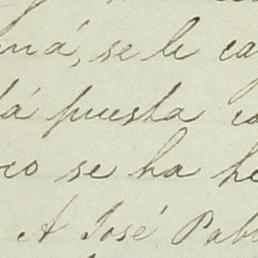 má, se le ca
tá puesta co
co se ha he
A José Pabl